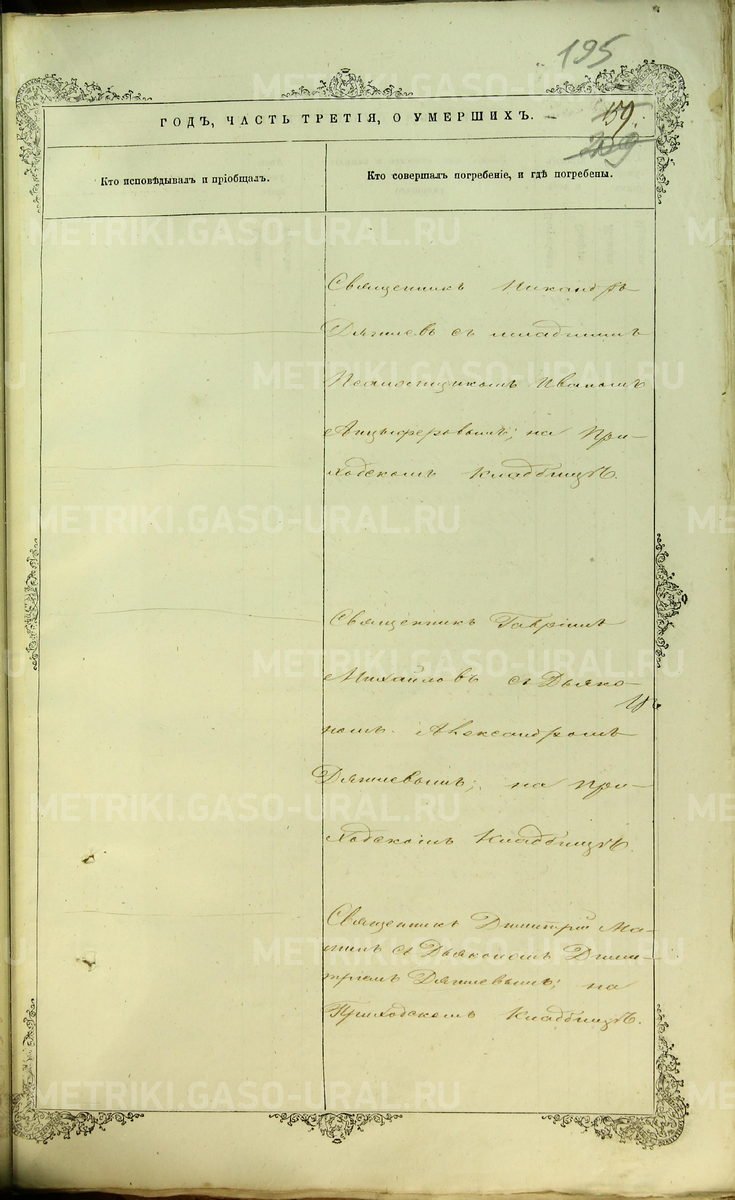 195
ГОДЪ, ЧАСТЬ ТРЕТІЯ, О УМЕРШИХЪ.
159.
209
Кто исповѣдывалъ и пріобщалъ.
Кто совершалъ погребеніе, и гдѣ погребены.
Священникъ Никандръ
Дягилевъ съ младшимъ
Псаломщикомъ Иваномъ
Анцыферовымъ; на При-
ходскомъ кладбищѣ.
Священникъ Гавріилъ
Михайловъ съ Дьяко-
номъ Александромъ
Дягилевымъ; на При-
ходскомъ Кладбищѣ.
Священникъ Димитрій
съ Дьякономъ Дими-
тріемъ Дягилевымъ; на
Приходскомъ Кладбищѣ.
METRIKI.GASO-URAL.RU